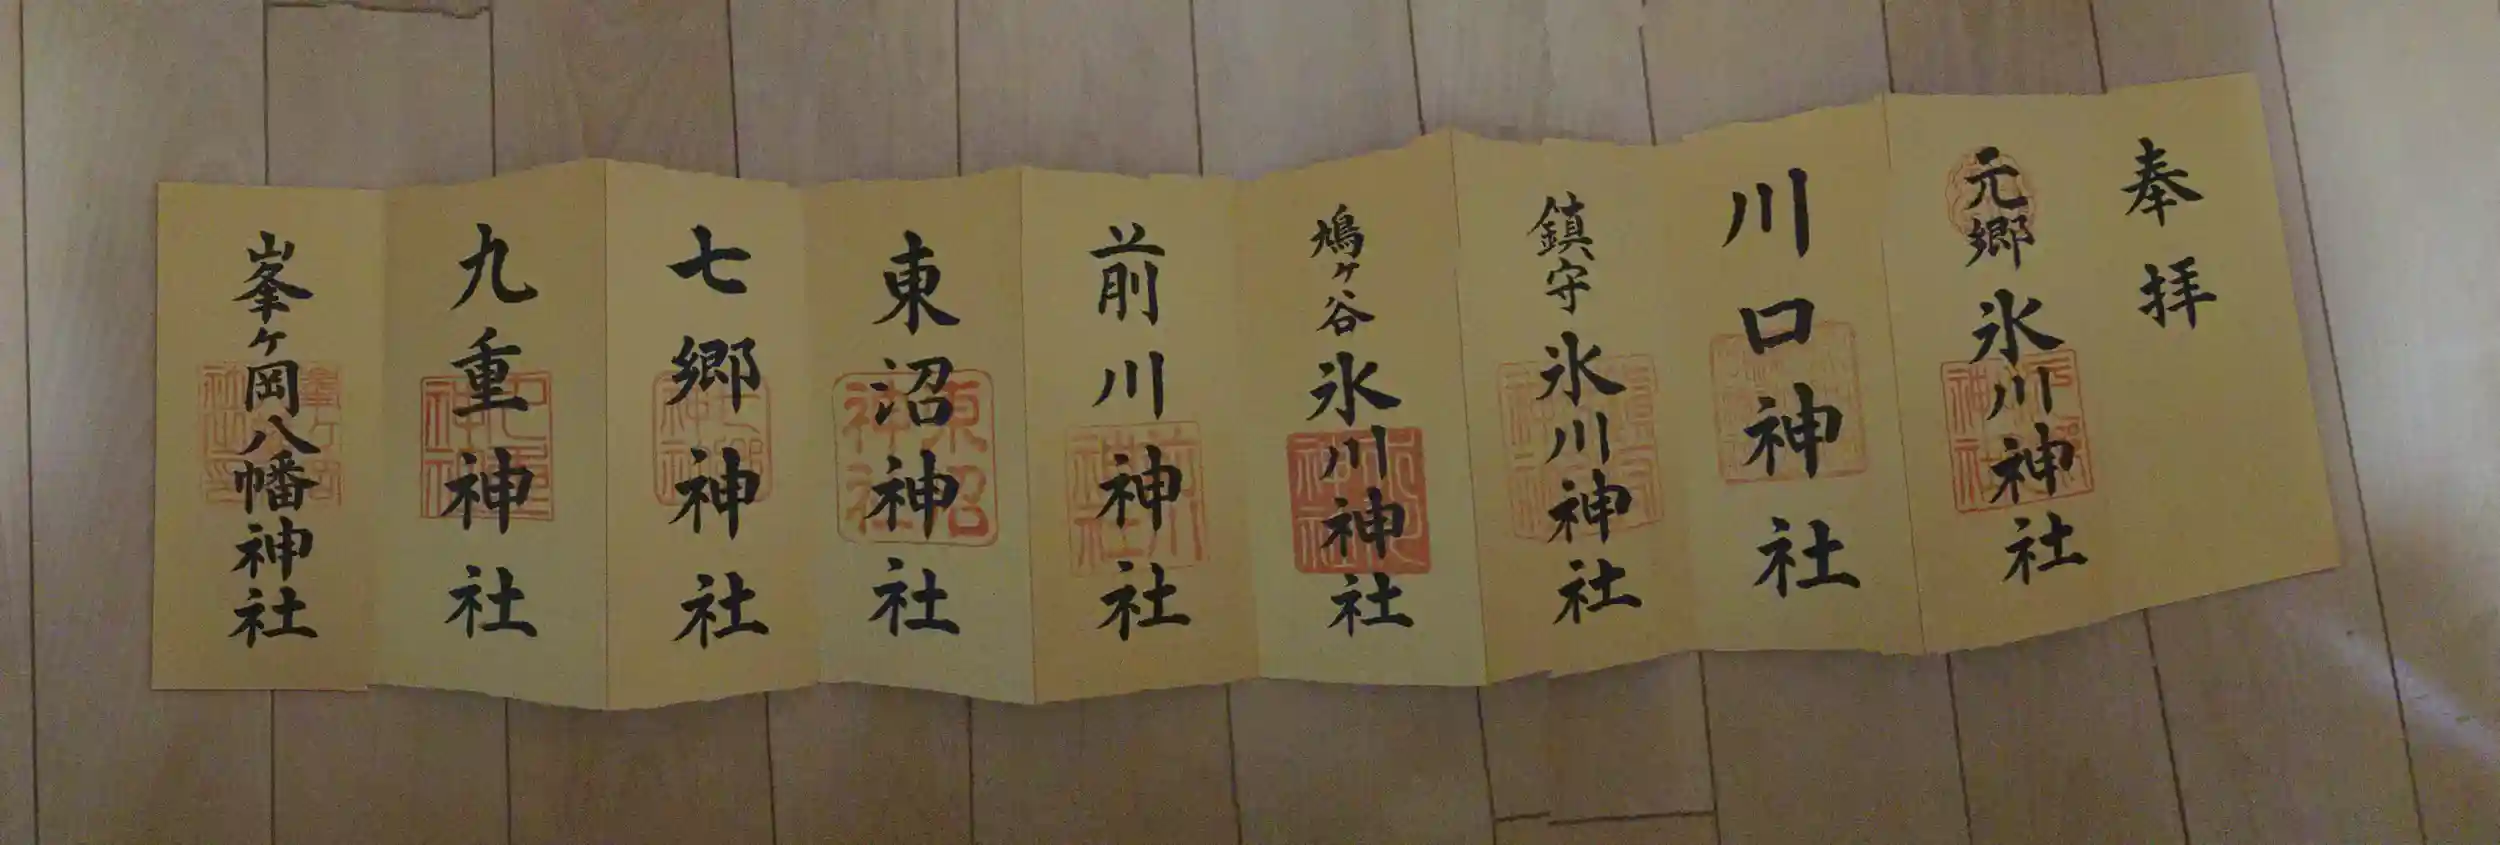 奉拝
元郷氷川神社
川口神社
鎮守氷川神社
鳩ヶ谷氷川神社
前川神社
東沼神社
七郷神社
九重神社
峯ヶ岡八幡神社